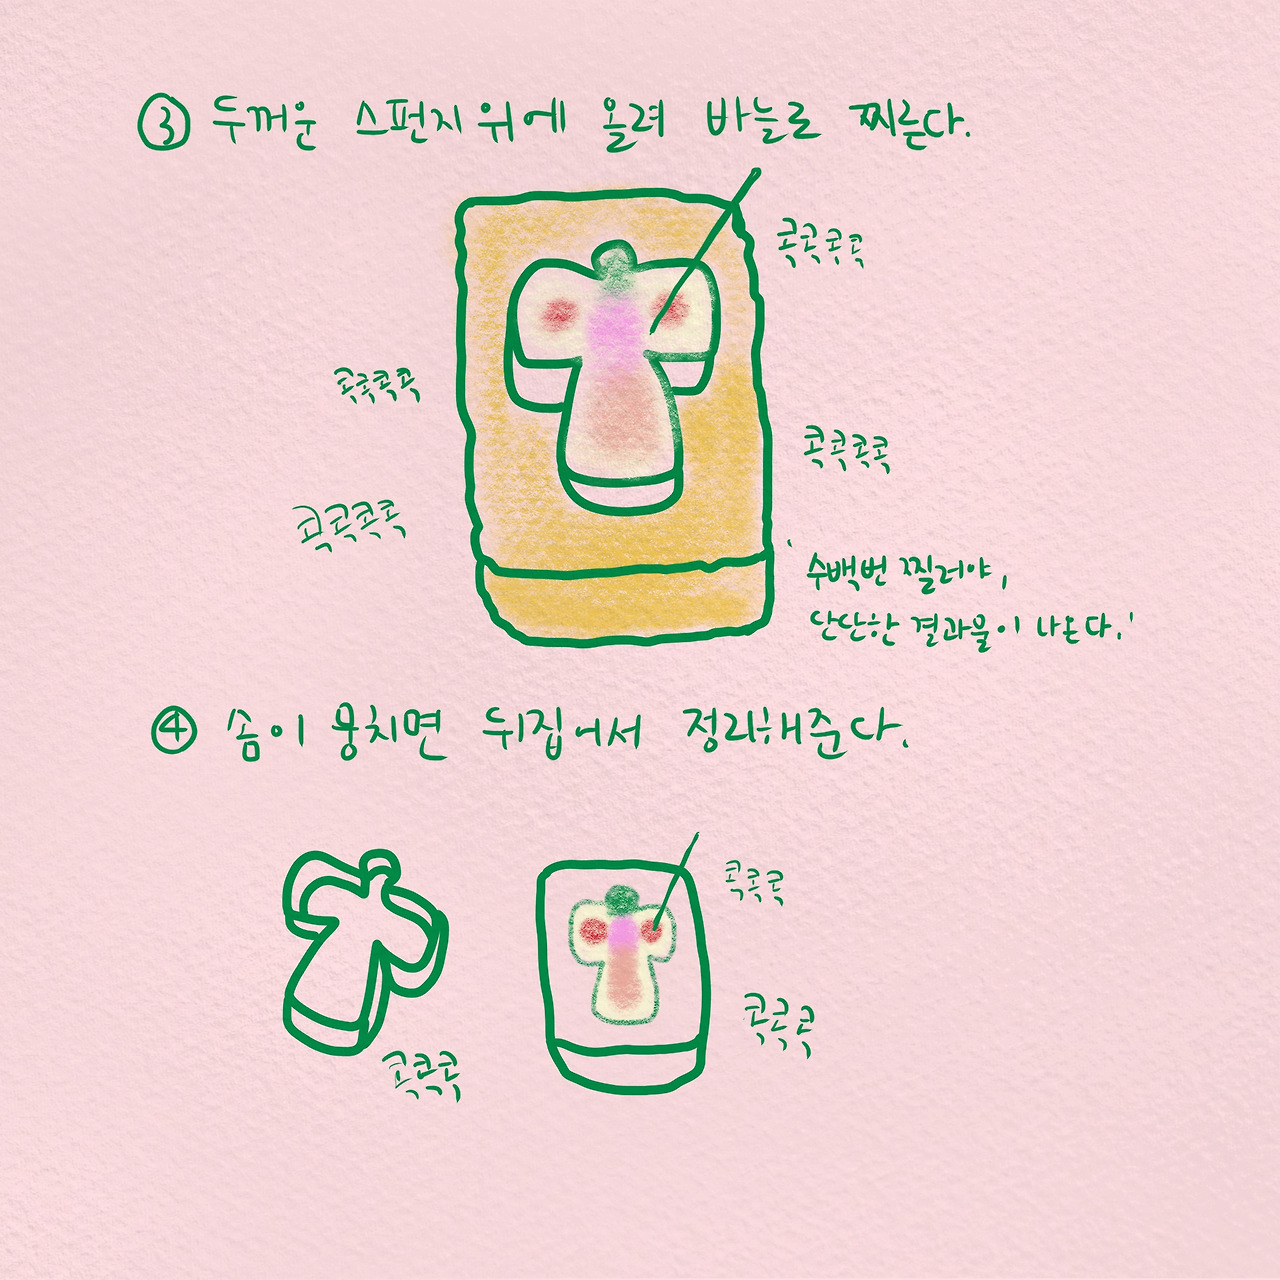 ③ 두꺼운 스펀지 위에 올려 바늘로 찌른다.
콕콕콕콕
콕콕콕콕
콕콕콕콕
콕콕콕콕
'수백번 찔러야,
단단한 결과물이 나온다.'
④ 솜이 뭉치면 뒤집어서 정리해준다.
콕콕콕
콕콕콕
콕콕콕